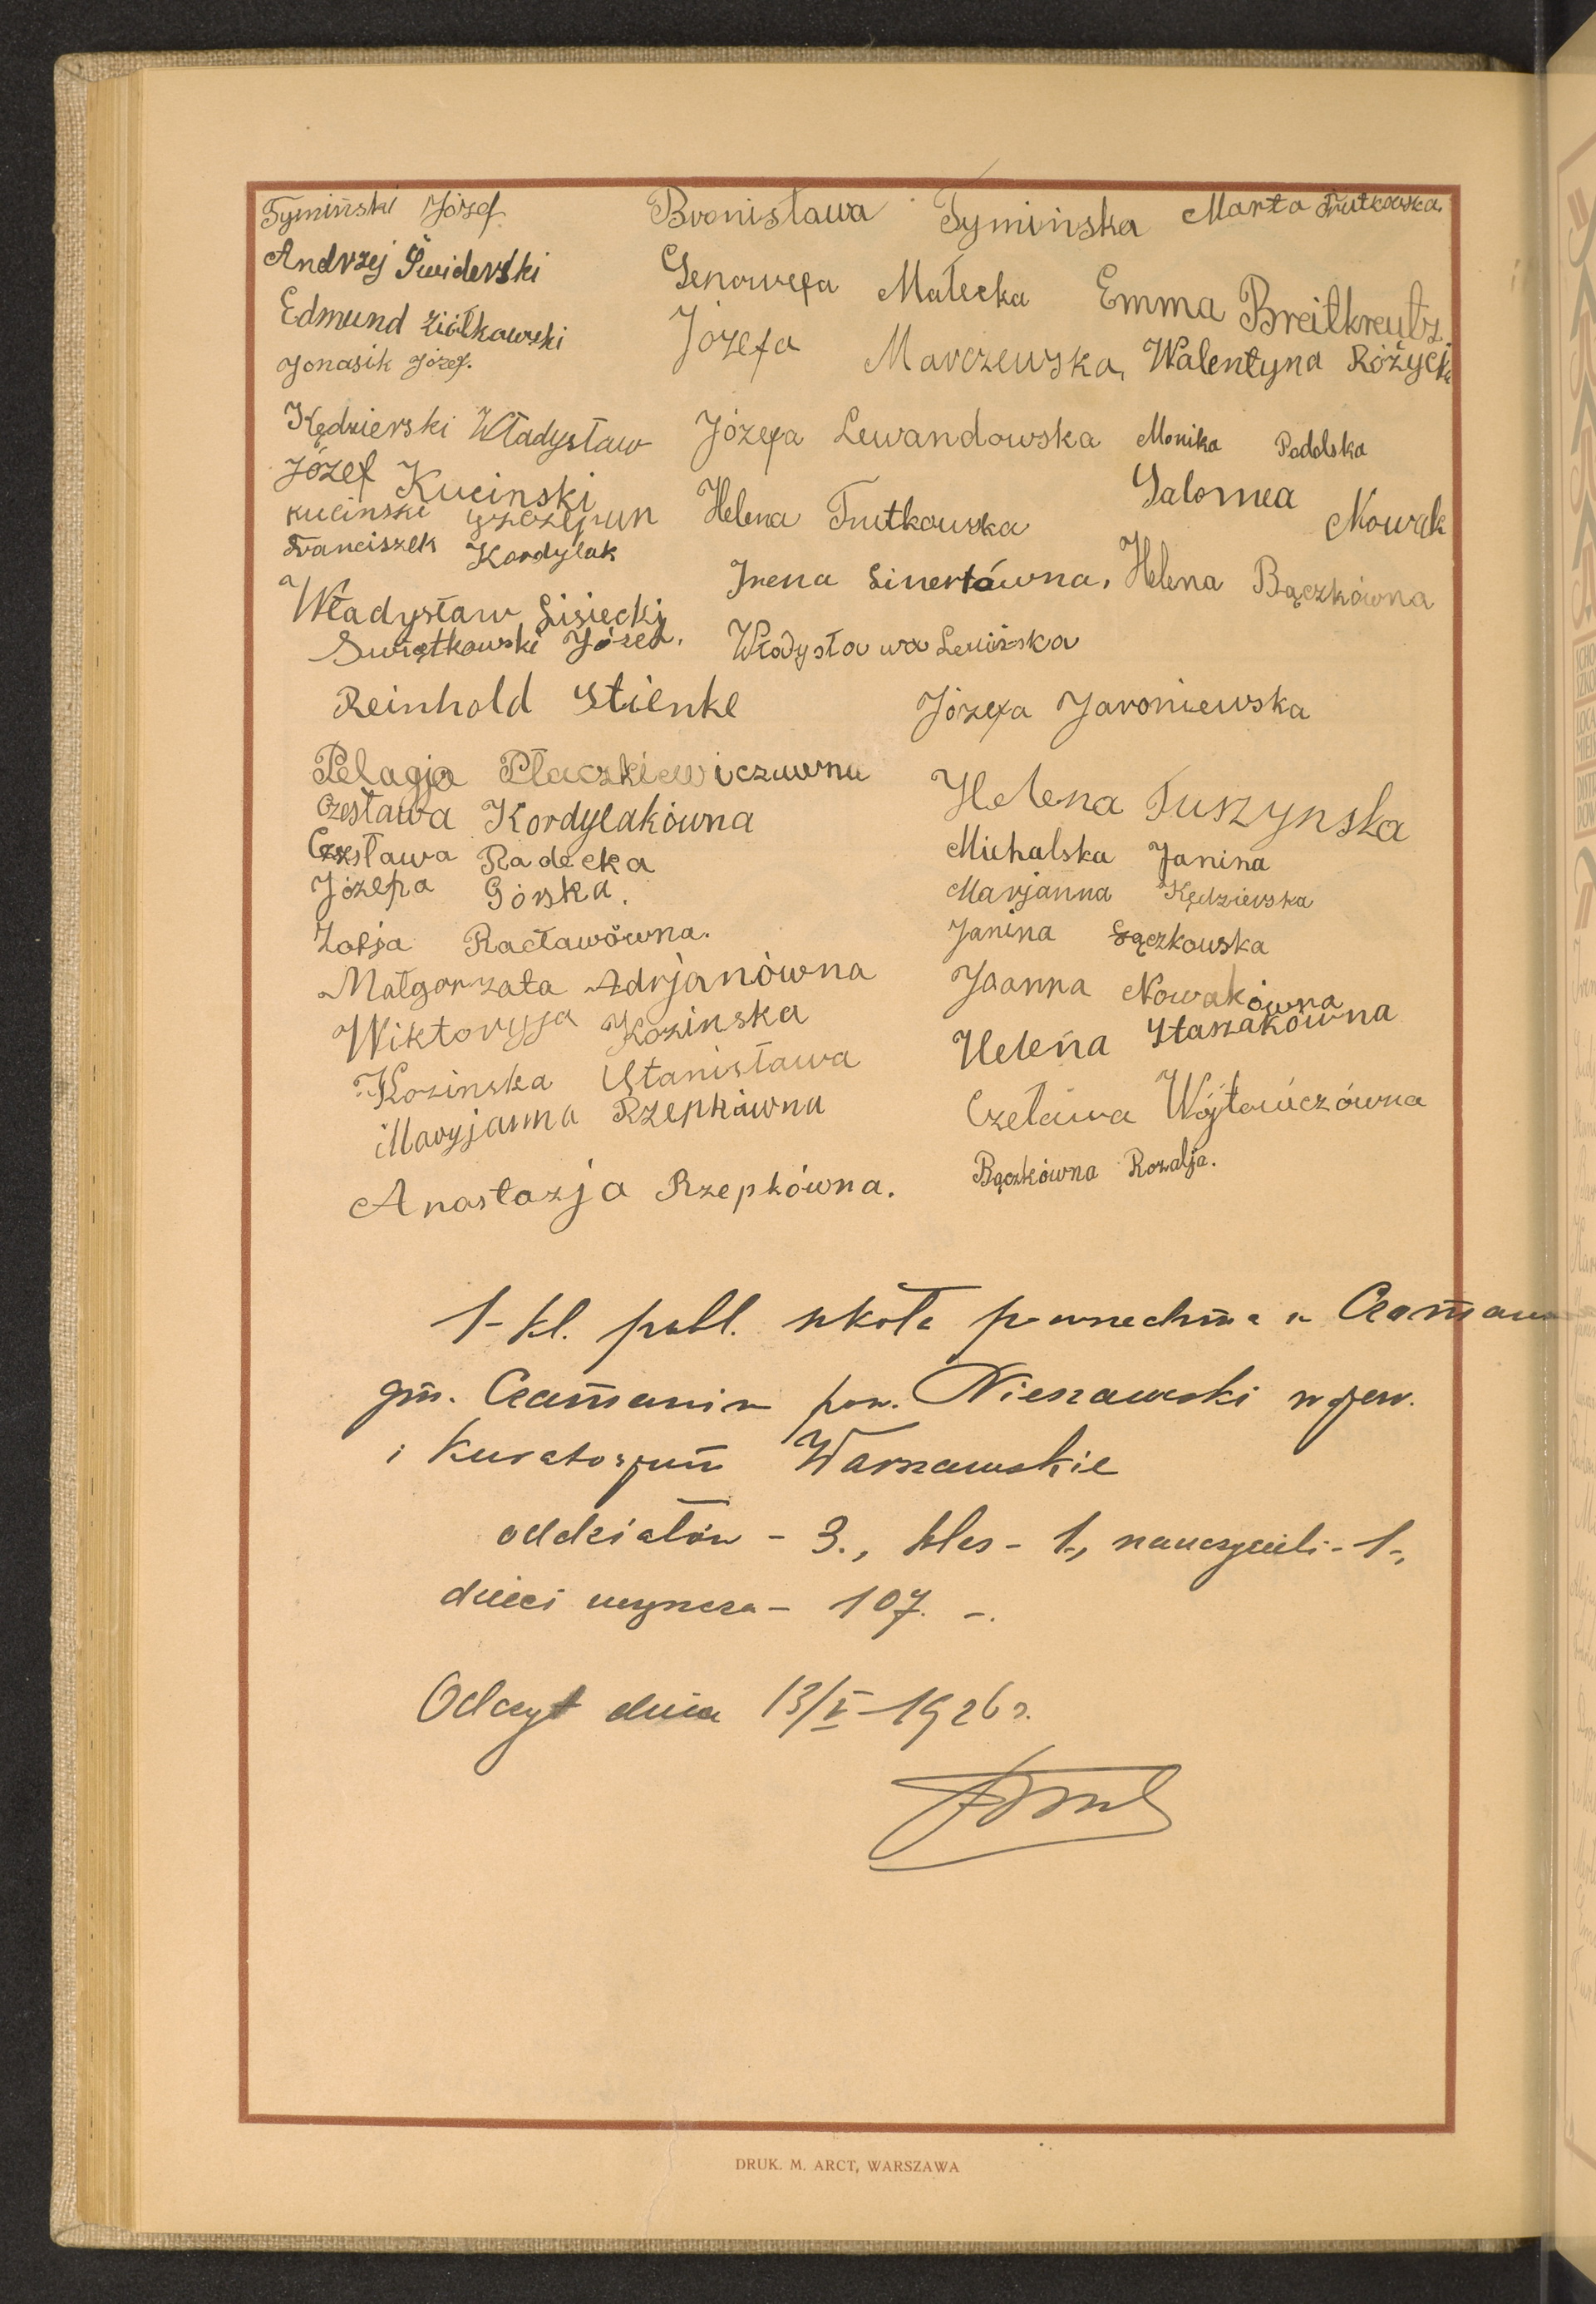 Tymiński Józef Bronisława Tymińska Marta Trutkowska
Andrzej Świderski Genowefa Małecka Emma Breitkreutz
Edmund Ziółkowski Józefa Marczewska, Walentyna Różycka
Jonasik Józef.
Kędzierski Władysław Józefa Lewandowska Monika Podolska
Józef Kucinski Salomea Nowak
Kucinski Szczepan Helena Trutkowska
Franciszek Kordylak
Władysław Lisiecki Irena Sinertówna, Helena Bączkówna
Swiątkowski Józef. Władysława Lewińska
Reinhold Stienke Józefa Jaroniewska
Pelagja Płaczkiewiczuwna Helena Tuszynska
Czesława Kordylakówna
Czesława Radecka Michalska Janina
Józefa Górska. Marjanna Kędzierska
Zofja Racławówna. Janina Łączkowska
Małgorzata Adrjanówna Joanna Nowakówna
Wiktoryja Kozinska Helena Staszakówna
Kozinska Stanisława
Maryjanna Rzepkówna Czeława Wójtowiczówna
Anastazja Rzepkówna. Bączkówna Rozalja.
1-kl. publ. szkoła powszechna w
gm. pow. Nieszawski wojew.
i Kuratorjum Warszawskie
oddziałów - 3., klas - 1-, nauczycieli - 1-,
dzieci wynosza - 107. -.
Odczyt dnia 13/V-1926 r.
DRUK. M. ARCT, WARSZAWA